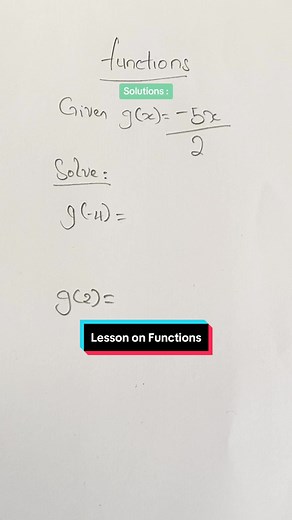 functions
Solutions :
Given g(x) = -5x/2
Solve:
g(-4) =
g(2) =
Lesson on Functions